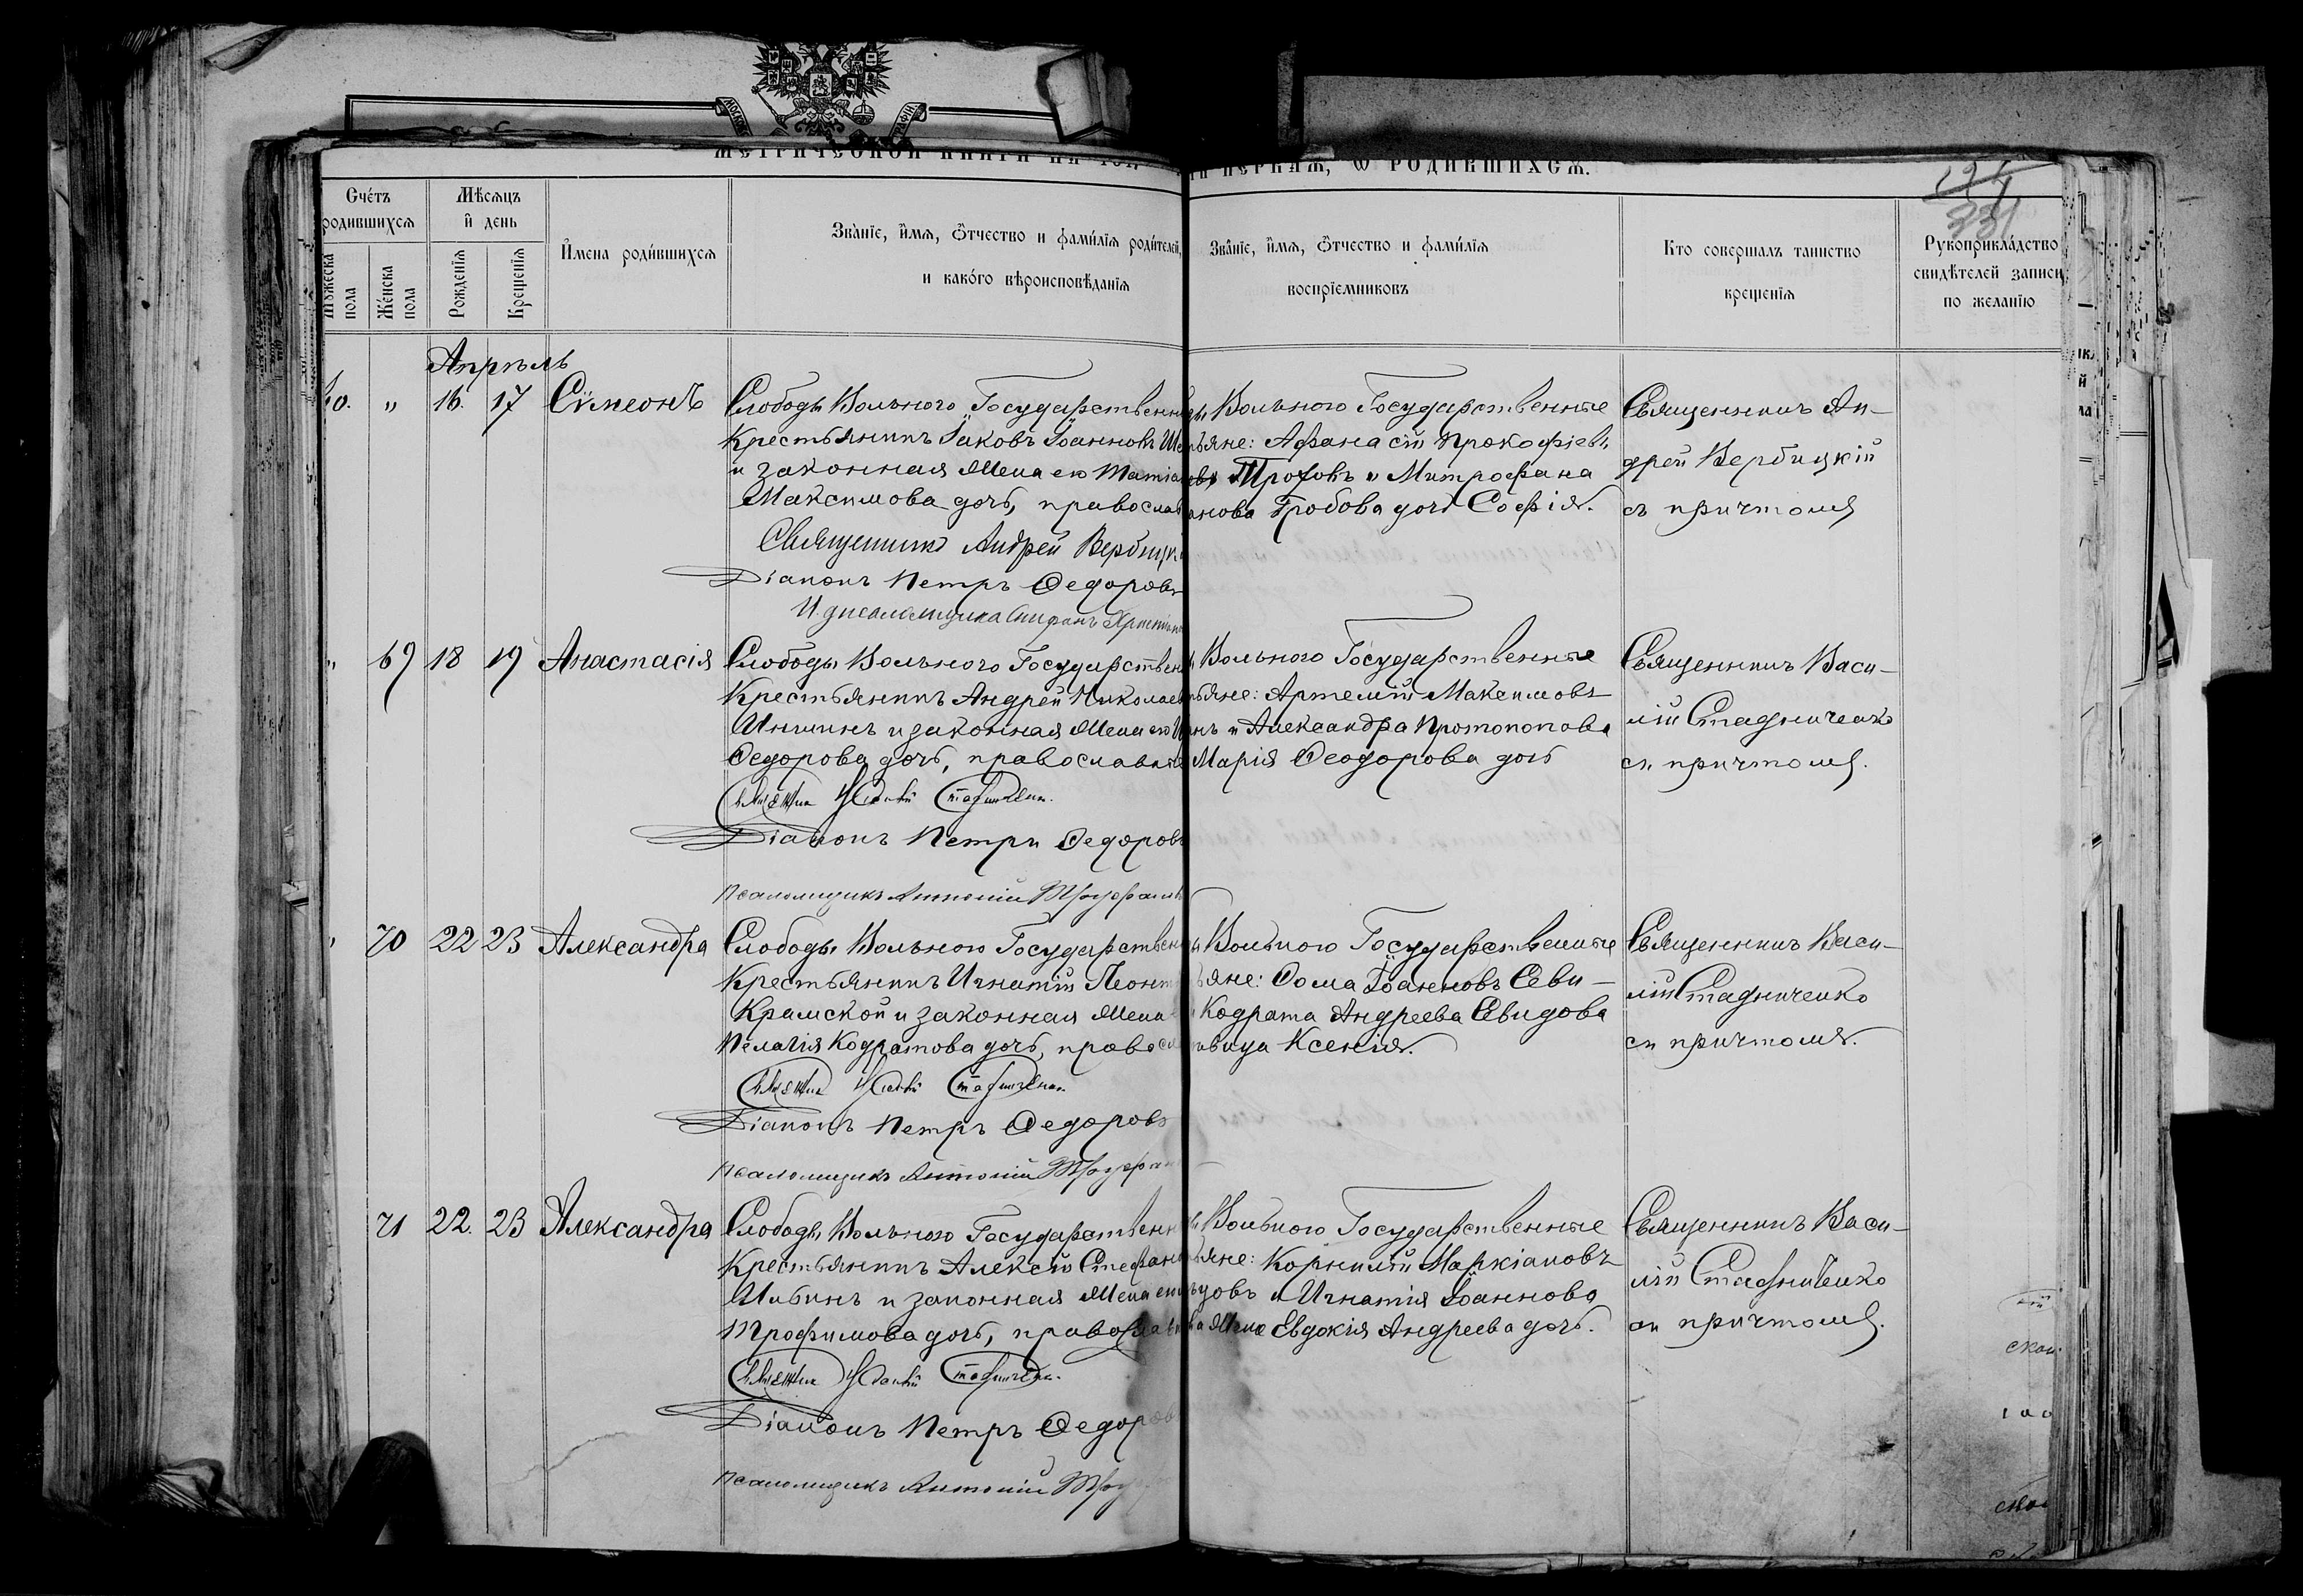 МЕТРИЧЕСКОЙ КНИГИ НА
ПЕРВАЯ, Ѡ РОДИВШИХСѦ.
Счетъ
родившихсѧ
Мѣсѧцъ
и день
Имена родившихсѧ
Званіе, имѧ, ѿчество и фамилія родителей,
и какого вѣроисповѣданія
Званіе, имѧ, ѿчество и фамилія
воспріемниковъ
Кто совершалъ таинство
крещенія
Рукоприкладство
свидѣтелей записи
по желанію
Мужеска
пола
Женска
пола
Рожденія
Крещенія
Апрѣль
16. 17 Сѵмеонъ
Слободы Вольного Государственн
Крестьянинъ Іаковъ Іоанновъ
и законная Жена его Татіа
Максимова дочь, правосла
Священникъ Андрей Вербицкі
Діаконъ Петръ Федоровъ
Вольного Государственные
яне: Афанасій Прокофіевъ
и Митрофана
Гробова дочь Софія.
Священникъ Ан-
дрей Вербицкій
съ причтомъ
69 18 19 Анастасія
Слободы Вольного Государствен
Крестьянинъ Андрей Николаев
и законная Жена его
Федорова дочь, православные
Діаконъ Петръ Федоровъ
Псаломщикъ Антоній
Вольного Государственные
яне: Артемій Максимовъ
и Александра Протопопова
Марія Феодорова дочь
Священникъ Васи-
лій Стадниченко
съ причтомъ.
70 22 23 Александра
Слободы Вольного Государствен
Крестьянинъ Игнатій Леонт
Крамской и законная Жена
Пелагія Кодратова дочь, правосл
Діаконъ Петръ Федоровъ
Псаломщикъ Антоній
Вольного Государственные
яне: Фома Іоанновъ Севи-
Кодрата Андреева Севидова
вица Ксенія.
Священникъ Васи-
лій Стадниченко
съ причтомъ.
71 22. 23 Александра
Слободы Вольного Государственн
Крестьянинъ Алексій Стефан
и законная Жена его
Трофимова дочь, православ
Діаконъ Петръ Федоров
Псаломщикъ Антоній
Вольного Государственные
яне: Корнилій Маркіановъ
и Игнатія Іоаннова
Жена Евдокія Андреева дочь.
Священникъ Васи-
лій Стадниченко
съ причтомъ.